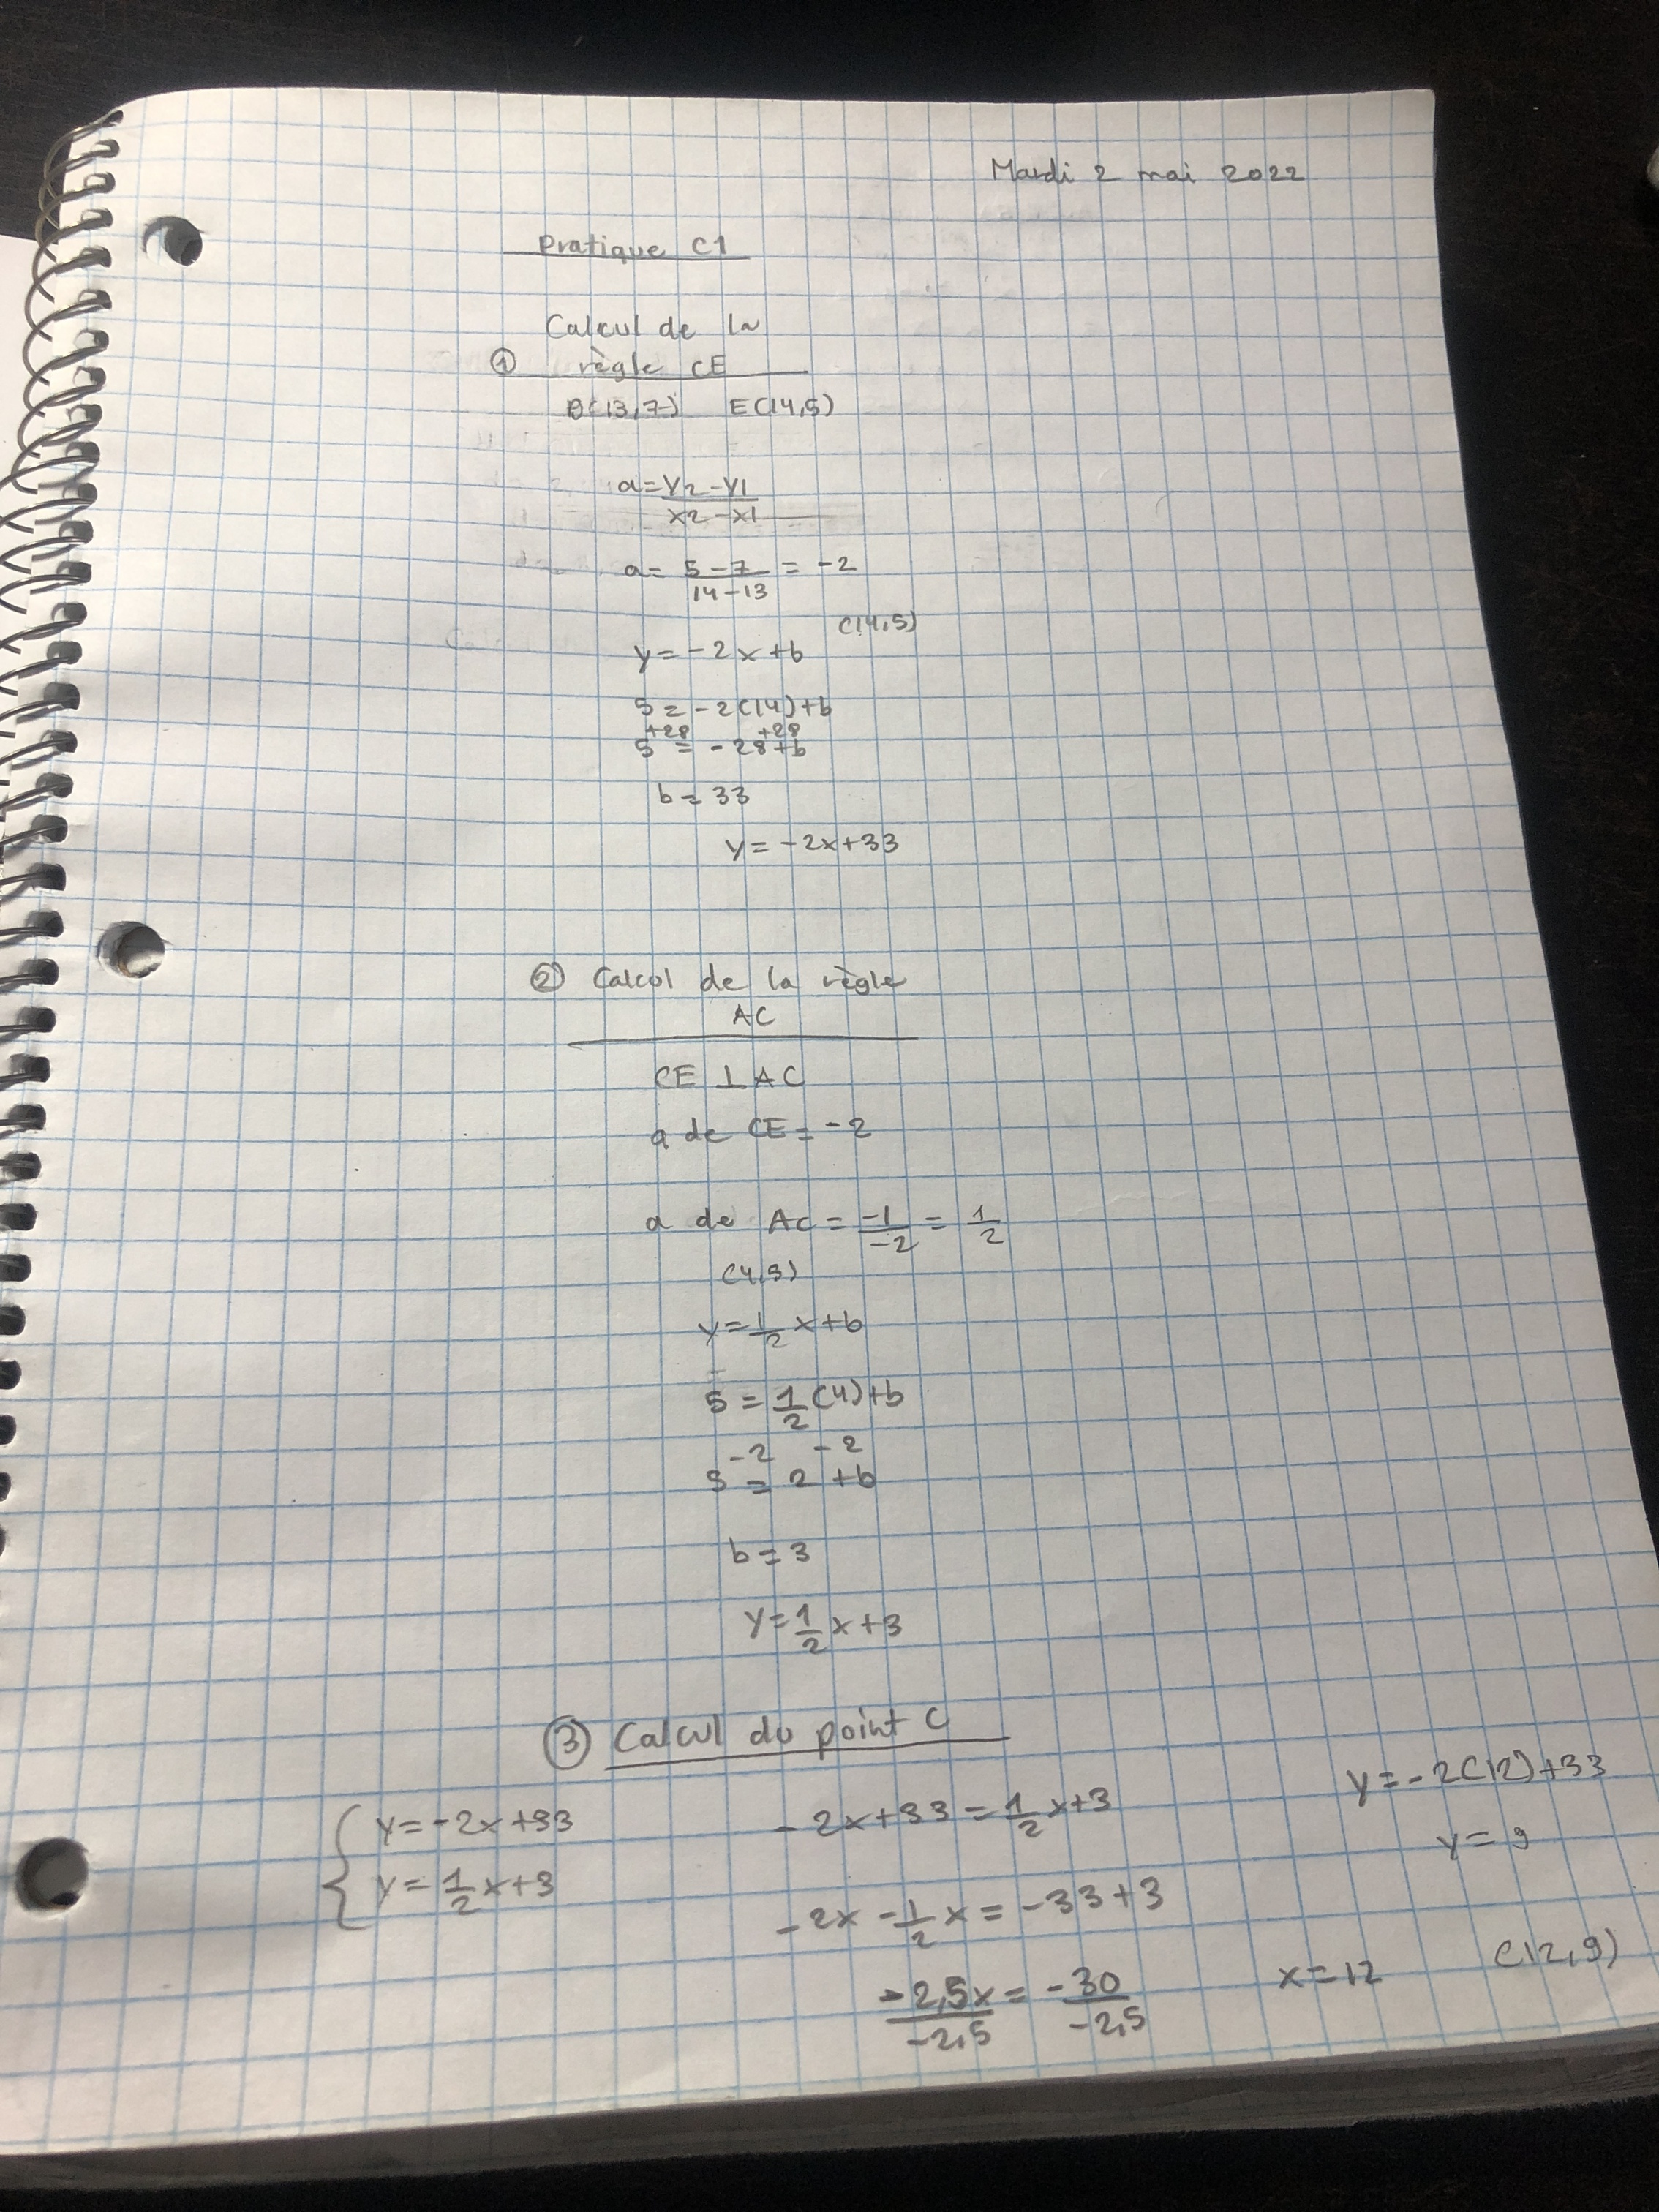 Mardi 2 mai 2022
Pratique C1
Calcul de la
① règle CE
D(13,7) E(14,5)
a = y2 - y1 / x2 - x1
a = 5 - 7 / 14 - 13 = -2
(14,5)
y = -2x + b
5 = -2(14) + b
+28 +28
5 = -28 + b
b = 33
y = -2x + 33
② Calcul de la règle
AC
CE ⊥ AC
a de CE = -2
a de AC = -1/-2 = 1/2
(4,5)
y = 1/2 x + b
5 = 1/2 (4) + b
-2 -2
5 = 2 + b
b = 3
y = 1/2 x + 3
③ Calcul du point C
{ y = -2x + 33
y = 1/2 x + 3
-2x + 33 = 1/2 x + 3
-2x - 1/2 x = -33 + 3
-2,5x / -2,5 = -30 / -2,5
x = 12
y = -2(12) + 33
y = 9
(12,9)